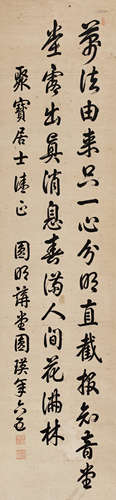 萬法由来只一心分明直截報知音堂
堂露出真消息春滿人間花滿林
聚寶居士正
圓明講堂圓瑛年六五